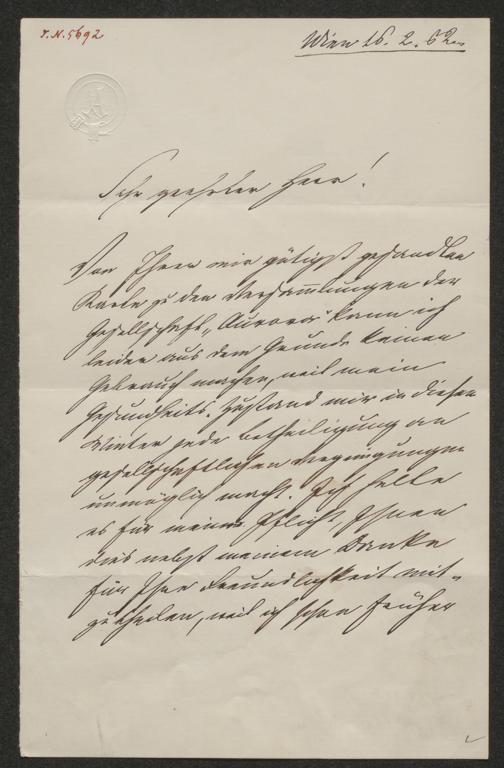 I.N. 5692
Wien 16. 2. 62
Sehr geehrter Herr!
Von Ihrer mir gütigst gesandten
Karte zu den Versammlungen der
Gesellschaft „Aurora" kann ich
leider aus dem Grunde keinen
Gebrauch machen, weil mein
Gesundheits-Zustand mir in diesem
Winter jede Betheiligung an
gesellschaftlichen Vergnügungen
unmöglich macht. Ich halte
es für meine Pflicht, Ihnen
dies nebst meinem Danke
für Ihre Freundlichkeit mit-
zutheilen, weil ich schon früher